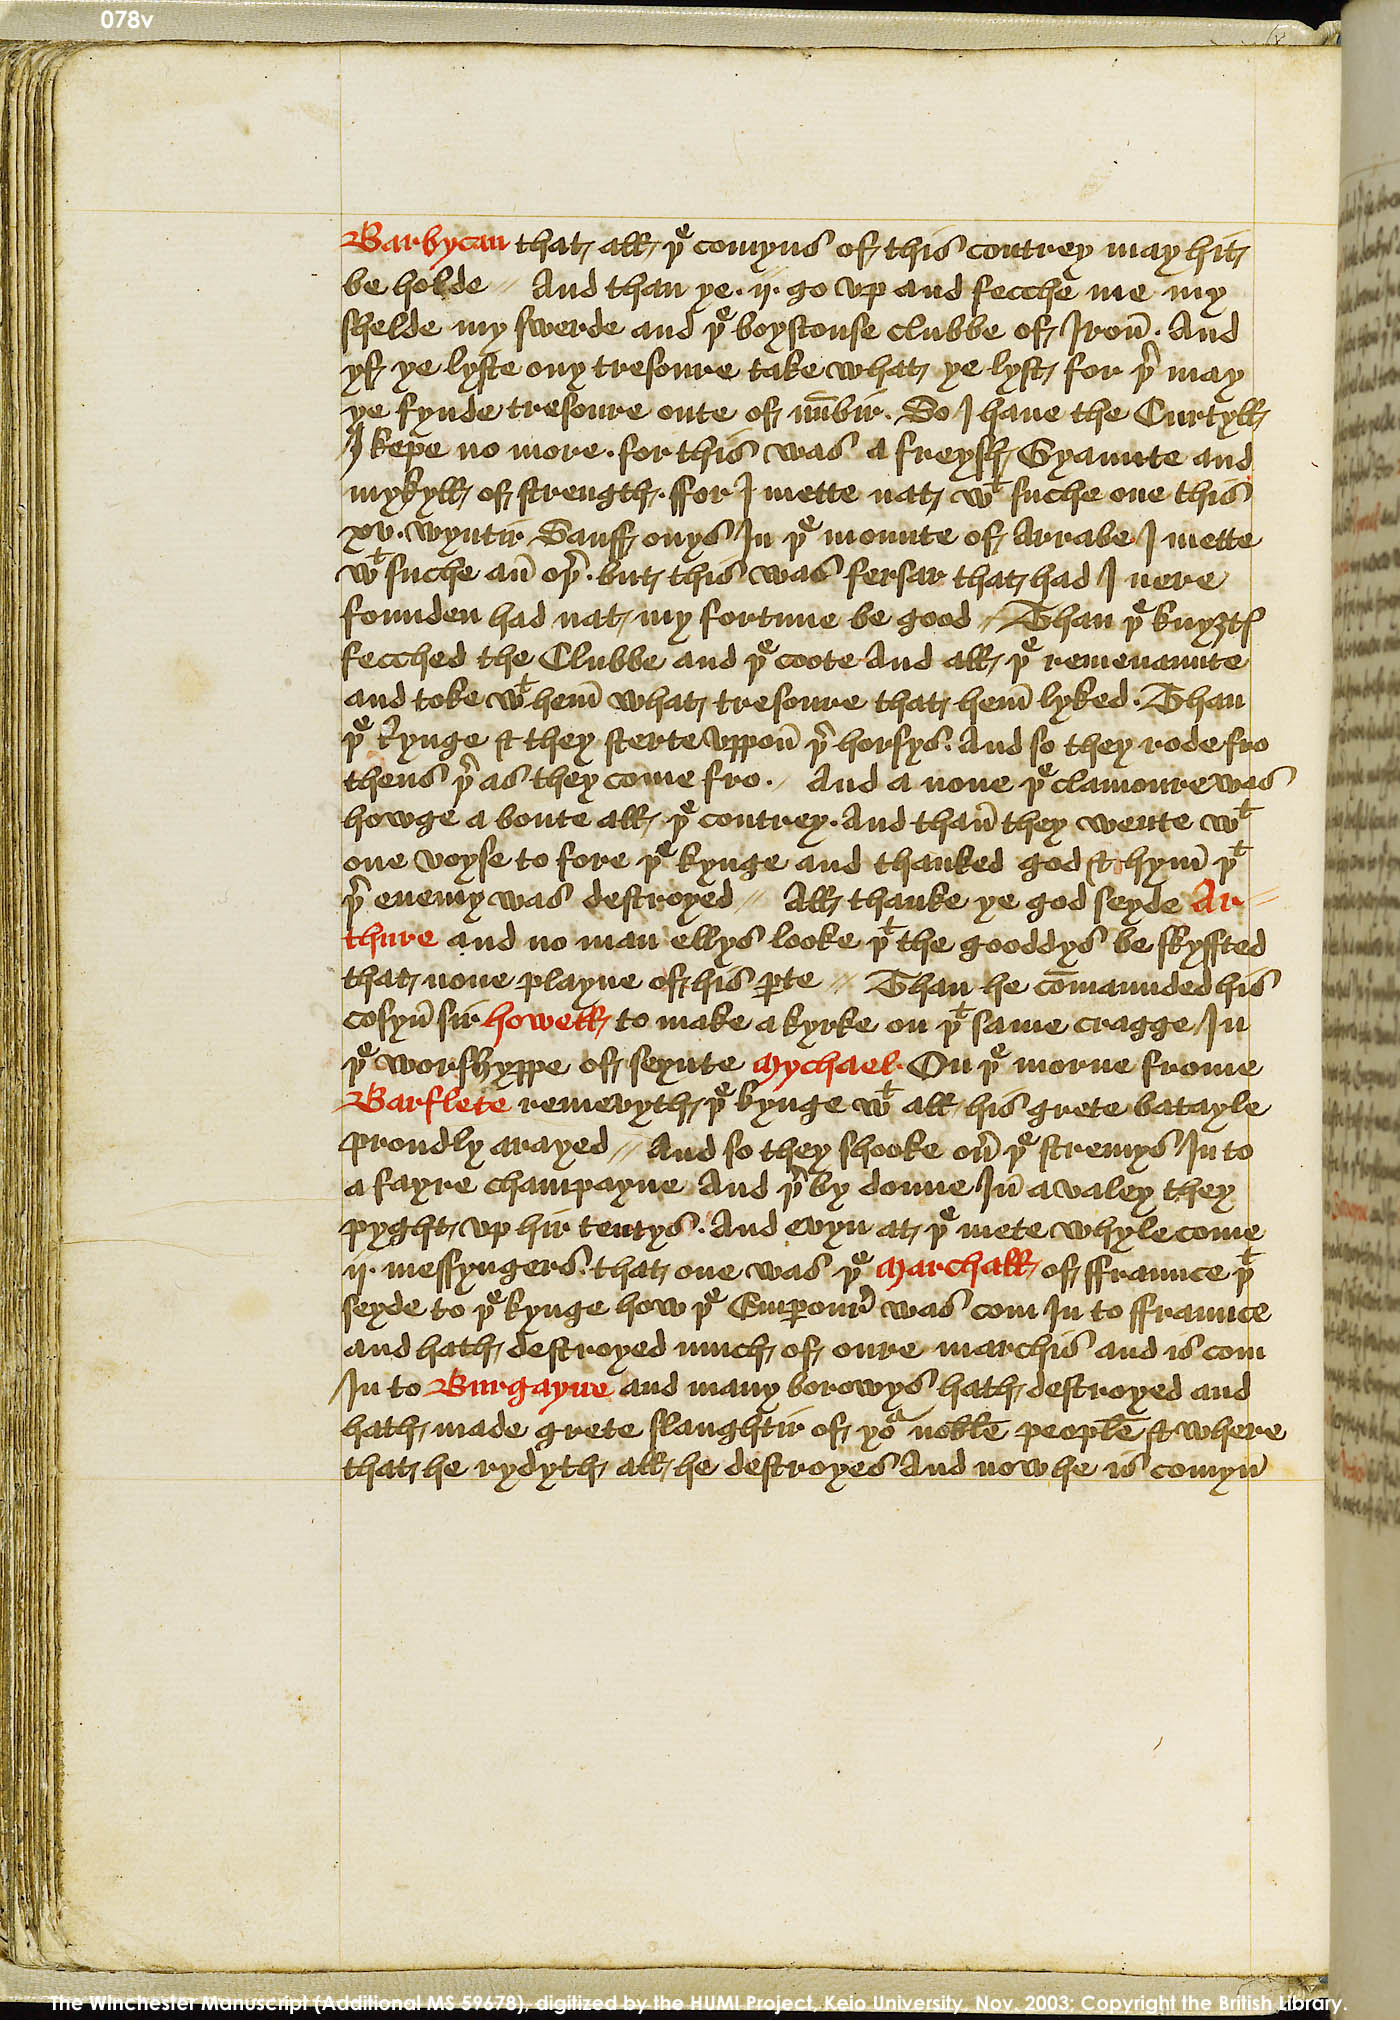 078v
Barbycan that all þͤ comyns of this contrey may hit
be holde // And than ye .ij. go vp and fecche me my
shelde my swerde and þͤ boystouse clubbe of Iron̄. And
yf ye lyste ony tresoure take what ye lyst for þʳ may
ye fynde tresoure oute of nūbir. So I haue the Curtyll
I kepe no more. for this was a freysh Gyaunte and
mykyll of strength. ffor I mette nat wᵗ suche one this
xv. wyntir Sauff onys In þͤ mounte of Arrabe I mette
wᵗ suche an̄ oþʳ. but this was fersar that had I nere
founden had nat my fortune be good // Than þͤ knyȝtꝭ
fecched the Clubbe and þͤ coote And all þͤ remenaunte
and toke wᵗ hem̄ what tresoure that hem̄ lyked. Than
þͤ kynge & they sterte vppon̄ þʳ horsys. And so they rode fro
thens þʳ as they come fro. // And a none þͤ clamoure was
howge a boute all þͤ contrey. And than̄ they wente wᵗ
one voyse to fore þͤ kynge and thanked god & hym̄ þᵗ
þʳ enemy was destroyed // All thanke ye god seyde Ar=
thure and no man ellys looke þᵗ the gooddys be skyffted
that none playne of his ꝑte // Than he cōmaunded his
cosyn̄ sir howell to make a kyrke on þᵗ same cragge In
þͤ worshyppe of seynte Mychael. On þͤ morne frome
Barflete remevyth þͤ kynge wᵗ all his grete batayle
proudly arayed // And so they shooke ouʳ þͤ stremys In to
a fayre champayne And þʳ by doune In̄ a valey they
pyght vp hir tentys. And evyn at þͤ mete whyle come
ij. messyngers. that one was þͤ Marchall of ffraunce þᵗ
seyde to þͤ kynge how þͤ Emꝑour̄ was com In to ffraunce
and hath destroyed much of oure marchis and is com
In to Burgayne and many borowys hath destroyed and
hath made grete slaughtir of yoʳ noble people & where
that he rydyth all he destroyes And now he is comyn̄
The Winchester Manuscript (Additional MS 59678), digitized by the HUMI Project, Keio University, Nov. 2003; Copyright the British Library.